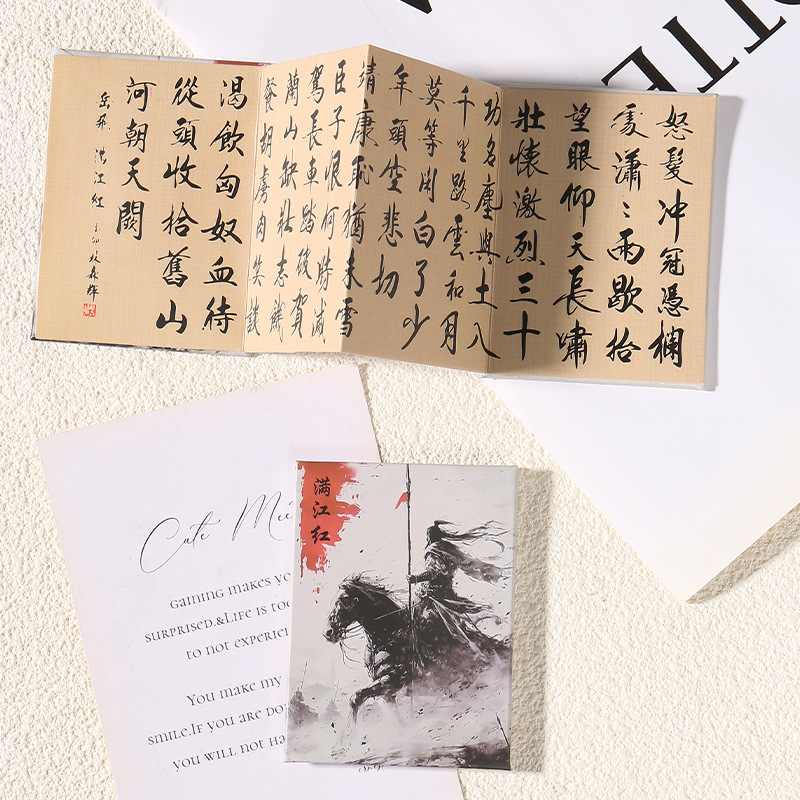 怒髮冲冠憑欄
處瀟〻雨歇抬
望眼仰天長嘯
壯懷激烈三十
功名塵與土八
千里路雲和月
莫等閑白了少
年頭空悲切
靖康恥猶未雪
臣子恨何時滅
駕長車踏破賀
蘭山缺壯志饑
餐胡虜肉笑談
渴飲匈奴血待
從頭收拾舊山
河朝天闕
岳飛 滿江紅
满江红
Cute Mee
gaining makes yo
surprised.&Life is too
to not experie
You make my
smile.If you are do
you will not ha